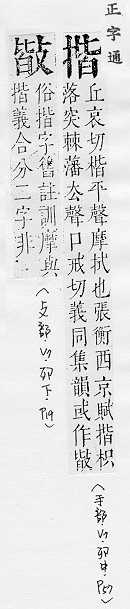 正字通
揩
丘哀切楷平聲摩拭也張衡西京賦揩枳
落突棘藩去聲口戒切義同集韻或作㪡
(手部,VS.卯中,P57)
㪡
俗揩字舊註訓摩與
揩義合分二字非
(攴部,VS.卯下,P19)